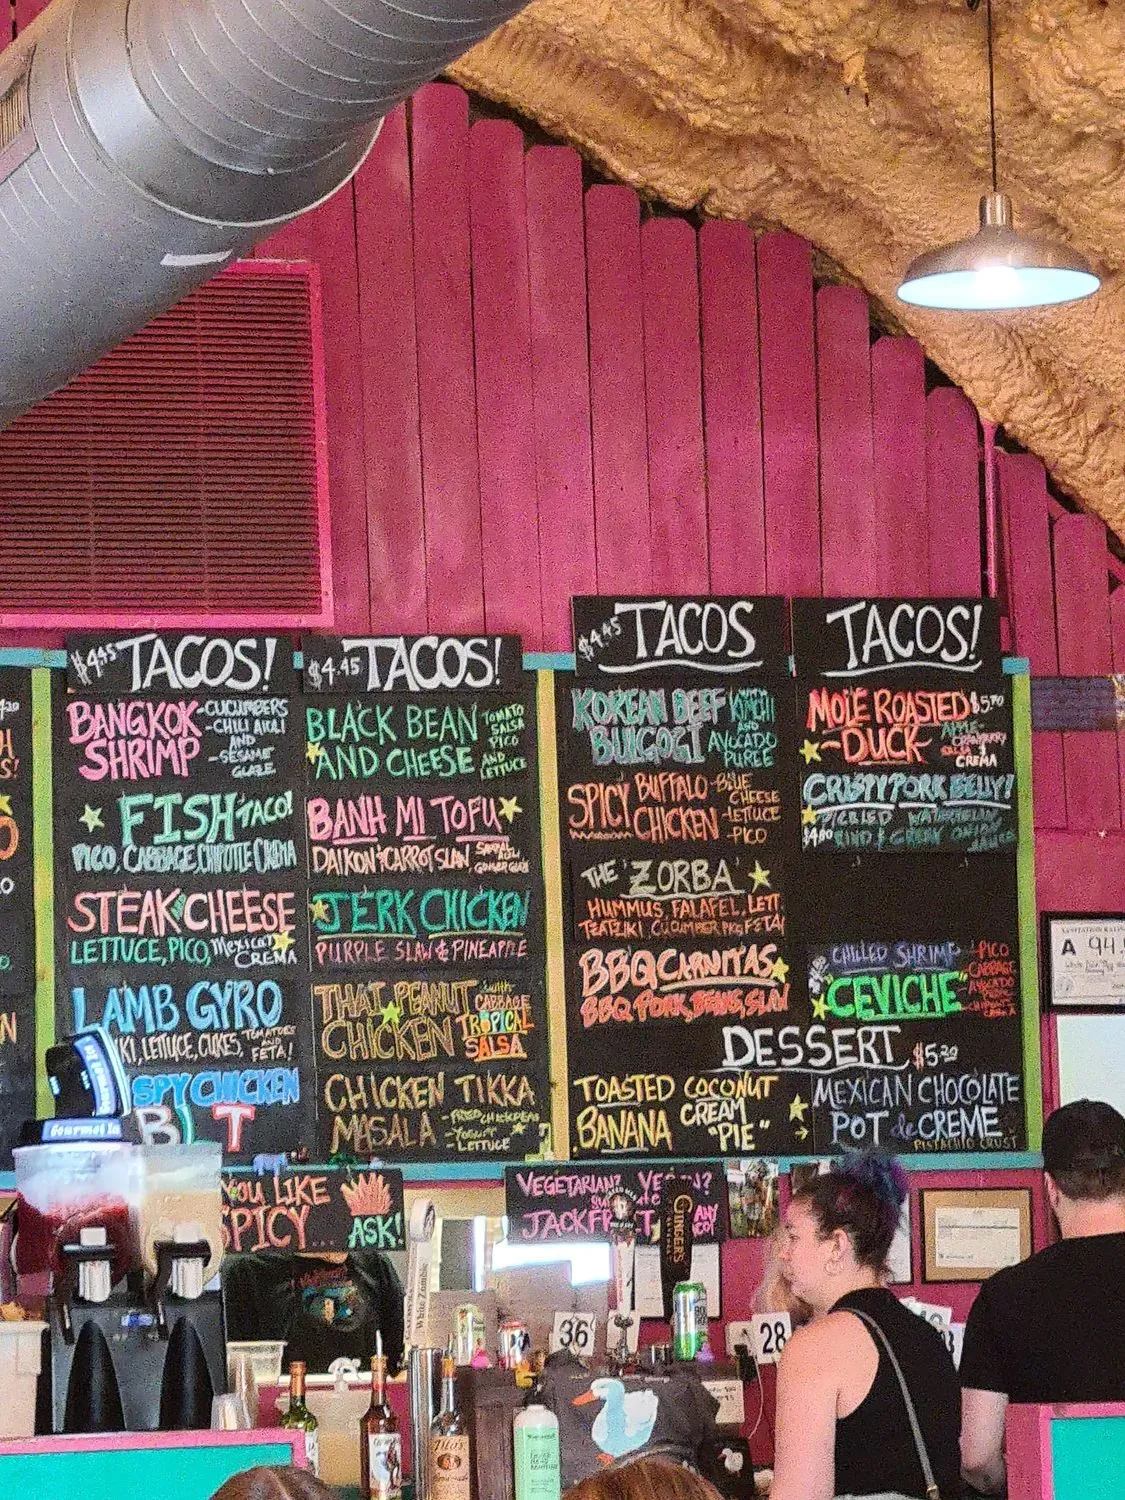 $4.45 TACOS!
BANGKOK
SHRIMP
-CUCUMBERS
-CHILI AIOLI
AND
-SESAME
GLAZE
FISH TACO!
PICO, CABBAGE, CHIPOTLE CREMA
STEAK & CHEESE
LETTUCE, PICO, MEXICAN
CREMA
LAMB GYRO
KI, LETTUCE, CUKES, TOMATOES
AND
FETA!
SPY CHICKEN
B T
$4.45 TACOS!
BLACK BEAN
AND CHEESE
TOMATO
SALSA
PICO
AND
LETTUCE
BANH MI TOFU
DAIKON & CARROT SLAW
JERK CHICKEN
PURPLE SLAW & PINEAPPLE
THAI PEANUT
CHICKEN
with
CABBAGE
TROPICAL
SALSA
CHICKEN TIKKA
MASALA
-FRIED CHICKPEAS
-YOGURT
-LETTUCE
$4.45 TACOS
KOREAN BEEF
BULGOGI
KIMCHI
AND
AVOCADO
PUREE
SPICY BUFFALO
CHICKEN
-BLUE
CHEESE
-LETTUCE
-PICO
THE ZORBA
HUMMUS, FALAFEL, LETT
TZATZIKI CUCUMBER PICO FETA
BBQ CARNITAS
BBQ PORK, BEANS, SLAW
TACOS!
MOLE ROASTED $5.70
-DUCK-
CREMA
CRISPY PORK BELLY!
PICKLED WATERMELON
$4.80 RIND & GREEN ONION
CHILLED SHRIMP
"CEVICHE"
-PICO
CABBAGE
AVOCADO
DESSERT $5.20
TOASTED COCONUT
BANANA CREAM
"PIE"
MEXICAN CHOCOLATE
POT de CREME
PISTACHIO CRUST
YOU LIKE
SPICY...
ASK!
VEGETARIAN?
JACKFR
ANY
GINGER'S
White Zombie
A 94.
Gourmet Ice
36
28
Tito's